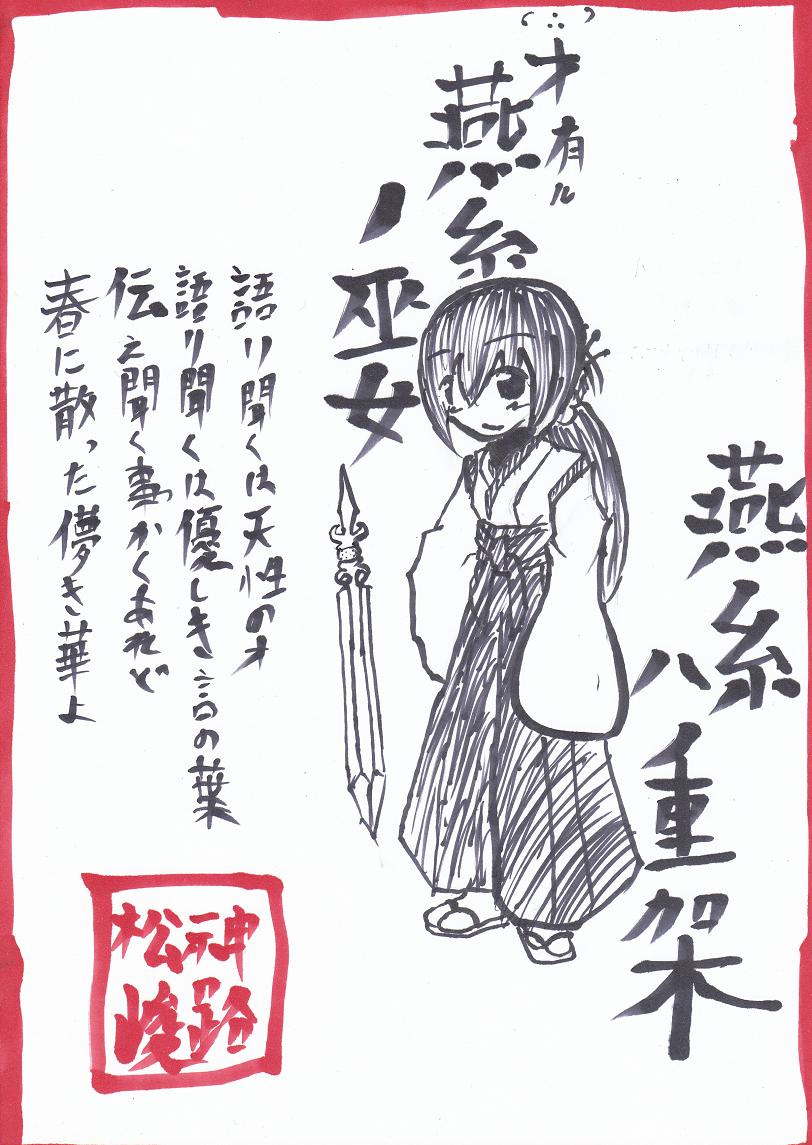 (∴)
才有ル
燕糸
ノ巫女
燕糸
八重架
語リ聞くは天性の才
語り聞くは優しき言の葉
伝え聞く事かくあれど
春に散った儚き華よ
神路
松峻